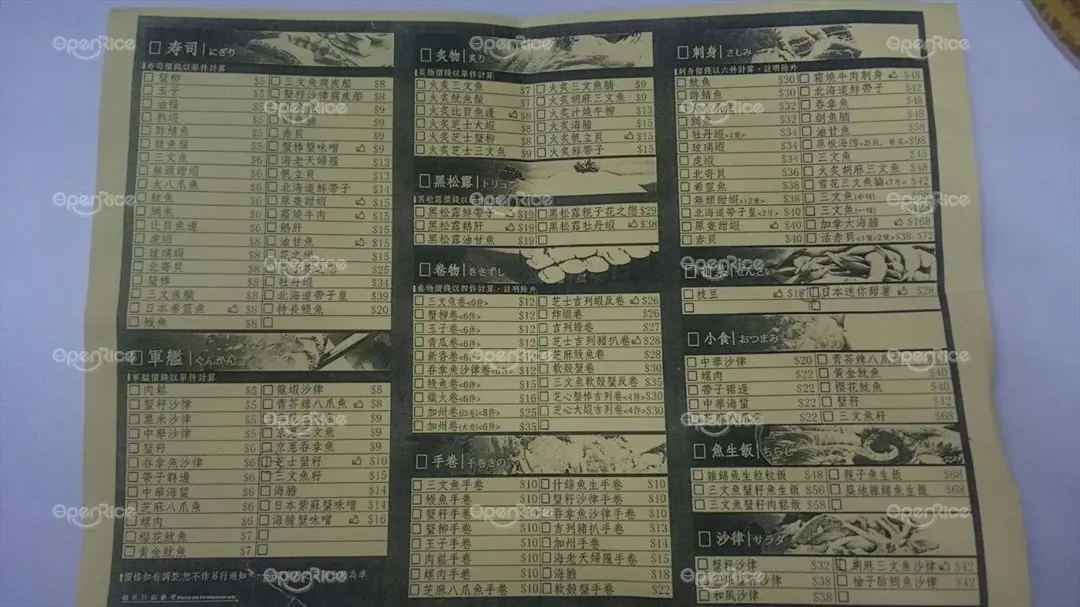 寿司 にぎり
壽司價錢以單件計算
蟹柳 $5
玉子 $5
油揚 $5
熟蝦 $5
醋鯖魚 $5
魷魚鬚 $5
三文魚 $6
無頭甜蝦 $6
大八爪魚 $6
魷魚 $6
鯛魚 $6
比目魚邊 $6
虎蝦 $8
玻璃蝦 $8
北寄貝 $8
蟹棒 $8
三文魚腩 $8
日本希靈魚 $8
鰻魚 $8
三文魚腐皮船 $8
蟹籽沙律腐皮船 $8
$9
$9
赤貝 $9
蟹棒蟹味噌 $9
海老天婦羅 $13
帆立貝 $13
北海道鮮帶子 $14
原隻甜蝦 $15
霜燒牛肉 $15
鵝肝 $15
油甘魚 $15
花之戀 $15
$25
牡丹蝦 $34
北海道帶子皇 $39
特長鰻魚 $20
軍艦 ぐんかん
軍艦價錢以單件計算
肉鬆 $5
蟹籽沙律 $5
粟米沙律 $5
中華沙律 $5
蟹籽 $6
吞拿魚沙律 $6
帶子群邊 $6
中華海蜇 $6
芝麻八爪魚 $6
螺肉 $6
櫻花魷魚 $7
黃金魷魚 $7
龍蝦沙律 $8
青芥辣八爪魚 $8
$9
京蔥三文魚 $9
京蔥吞拿魚 $9
芝士蟹籽 $10
三文魚籽 $15
海膽 $14
日本紫蘇蟹味噌 $14
海膽蟹味噌 $16
價格如有調整,恕不作另行通知 為準
炙物 炙り
炙物價錢以單件計算
火炙三文魚 $7
火炙魷魚鬚 $7
火炙比目魚邊 $8
火炙芝士大蝦 $8
火炙芝士蟹柳 $8
火炙芝士三文魚 $9
火炙三文魚腩 $9
火炙胡麻三文魚 $9
火炙汁燒牛柳 $13
火炙海膽 $15
火炙帆立貝 $15
火炙鮮帶子 $15
黑松露 トリュフ
黑松露價錢以
黑松露鮮帶子 $19
黑松露鵝肝 $19
黑松露油甘魚 $19
黑松露親子花之戀 $29
黑松露牡丹蝦 $38
卷物 巻きずし
卷物價錢以四件計算,註明除外
三文魚卷<6件> $12
蟹柳卷<6件> $12
玉子卷<6件> $12
青瓜卷<6件> $12
新香卷<6件> $12
吞拿魚沙律卷<6件> $12
鰻魚卷<6件> $15
鐵火卷<6件> $16
加州卷 <8件> $25
加州卷(大卷)<6件> $35
芝士吉列蝦反卷 $26
炸蝦卷 $26
吉列蠔卷 $27
芝士吉列豬扒卷 $28
芝麻鰻魚卷 $28
軟殼蟹卷 $30
三文魚軟殼蟹反卷 $35
芝心蟹棒吉列卷<4件> $30
芝心大蝦吉列卷<4件> $30
手卷 手巻きの
三文魚手卷 $10
鰻魚手卷 $10
蟹籽手卷 $10
蟹柳手卷 $10
玉子手卷 $10
肉鬆手卷 $10
螺肉手卷 $10
芝麻八爪魚手卷 $10
什錦魚生手卷 $10
蟹籽沙律手卷 $10
吞拿魚沙律手卷 $10
吉列豬扒手卷 $13
加州手卷 $14
海老天婦羅手卷 $15
海膽 $18
軟殼蟹手卷 $22
刺身 さしみ
刺身價錢以六件計算,註明除外
魷魚 $30
醋鯖魚 $30
$32
鯛魚 $32
牡丹蝦<1隻> $34
玻璃蝦 $34
虎蝦 $34
北寄貝 $36
希靈魚 $38
無頭甜蝦<12隻> $38
北海道帶子皇<2件> $40
原隻甜蝦 $40
赤貝 $40
霜燒牛肉刺身 $48
北海道鮮帶子 $42
吞拿魚 $48
劍魚腩 $48
油甘魚 $58
原板海膽 $98
三文魚 $45
火炙胡麻三文魚 $48
雪花三文魚腩<7件> $42
三文魚
三文魚
加拿大海膽 $168
活赤貝<1隻/2隻> $38/$72
前菜 ぜんさい
枝豆 $18
日本迷你甜薯 $28
小食 おつまみ
中華沙律 $20
螺肉 $22
帶子裙邊 $22
中華海蜇 $22
芝麻八爪魚 $22
青芥辣八爪魚
黃金魷魚 $40
櫻花魷魚 $40
蟹籽 $42
三文魚籽 $68
魚生飯 ちらし
雜錦魚生粒粒飯 $48
三文魚蟹籽魚生飯 $56
三文魚蟹籽肉鬆飯 $58
親子魚生飯 $68
築地雜錦魚生飯 $68
沙律 サラダ
蟹籽沙律 $32
沙律 $38
和風沙律 $38
胡麻三文魚沙律 $42
柚子醋鯛魚沙律 $42
OpenRice